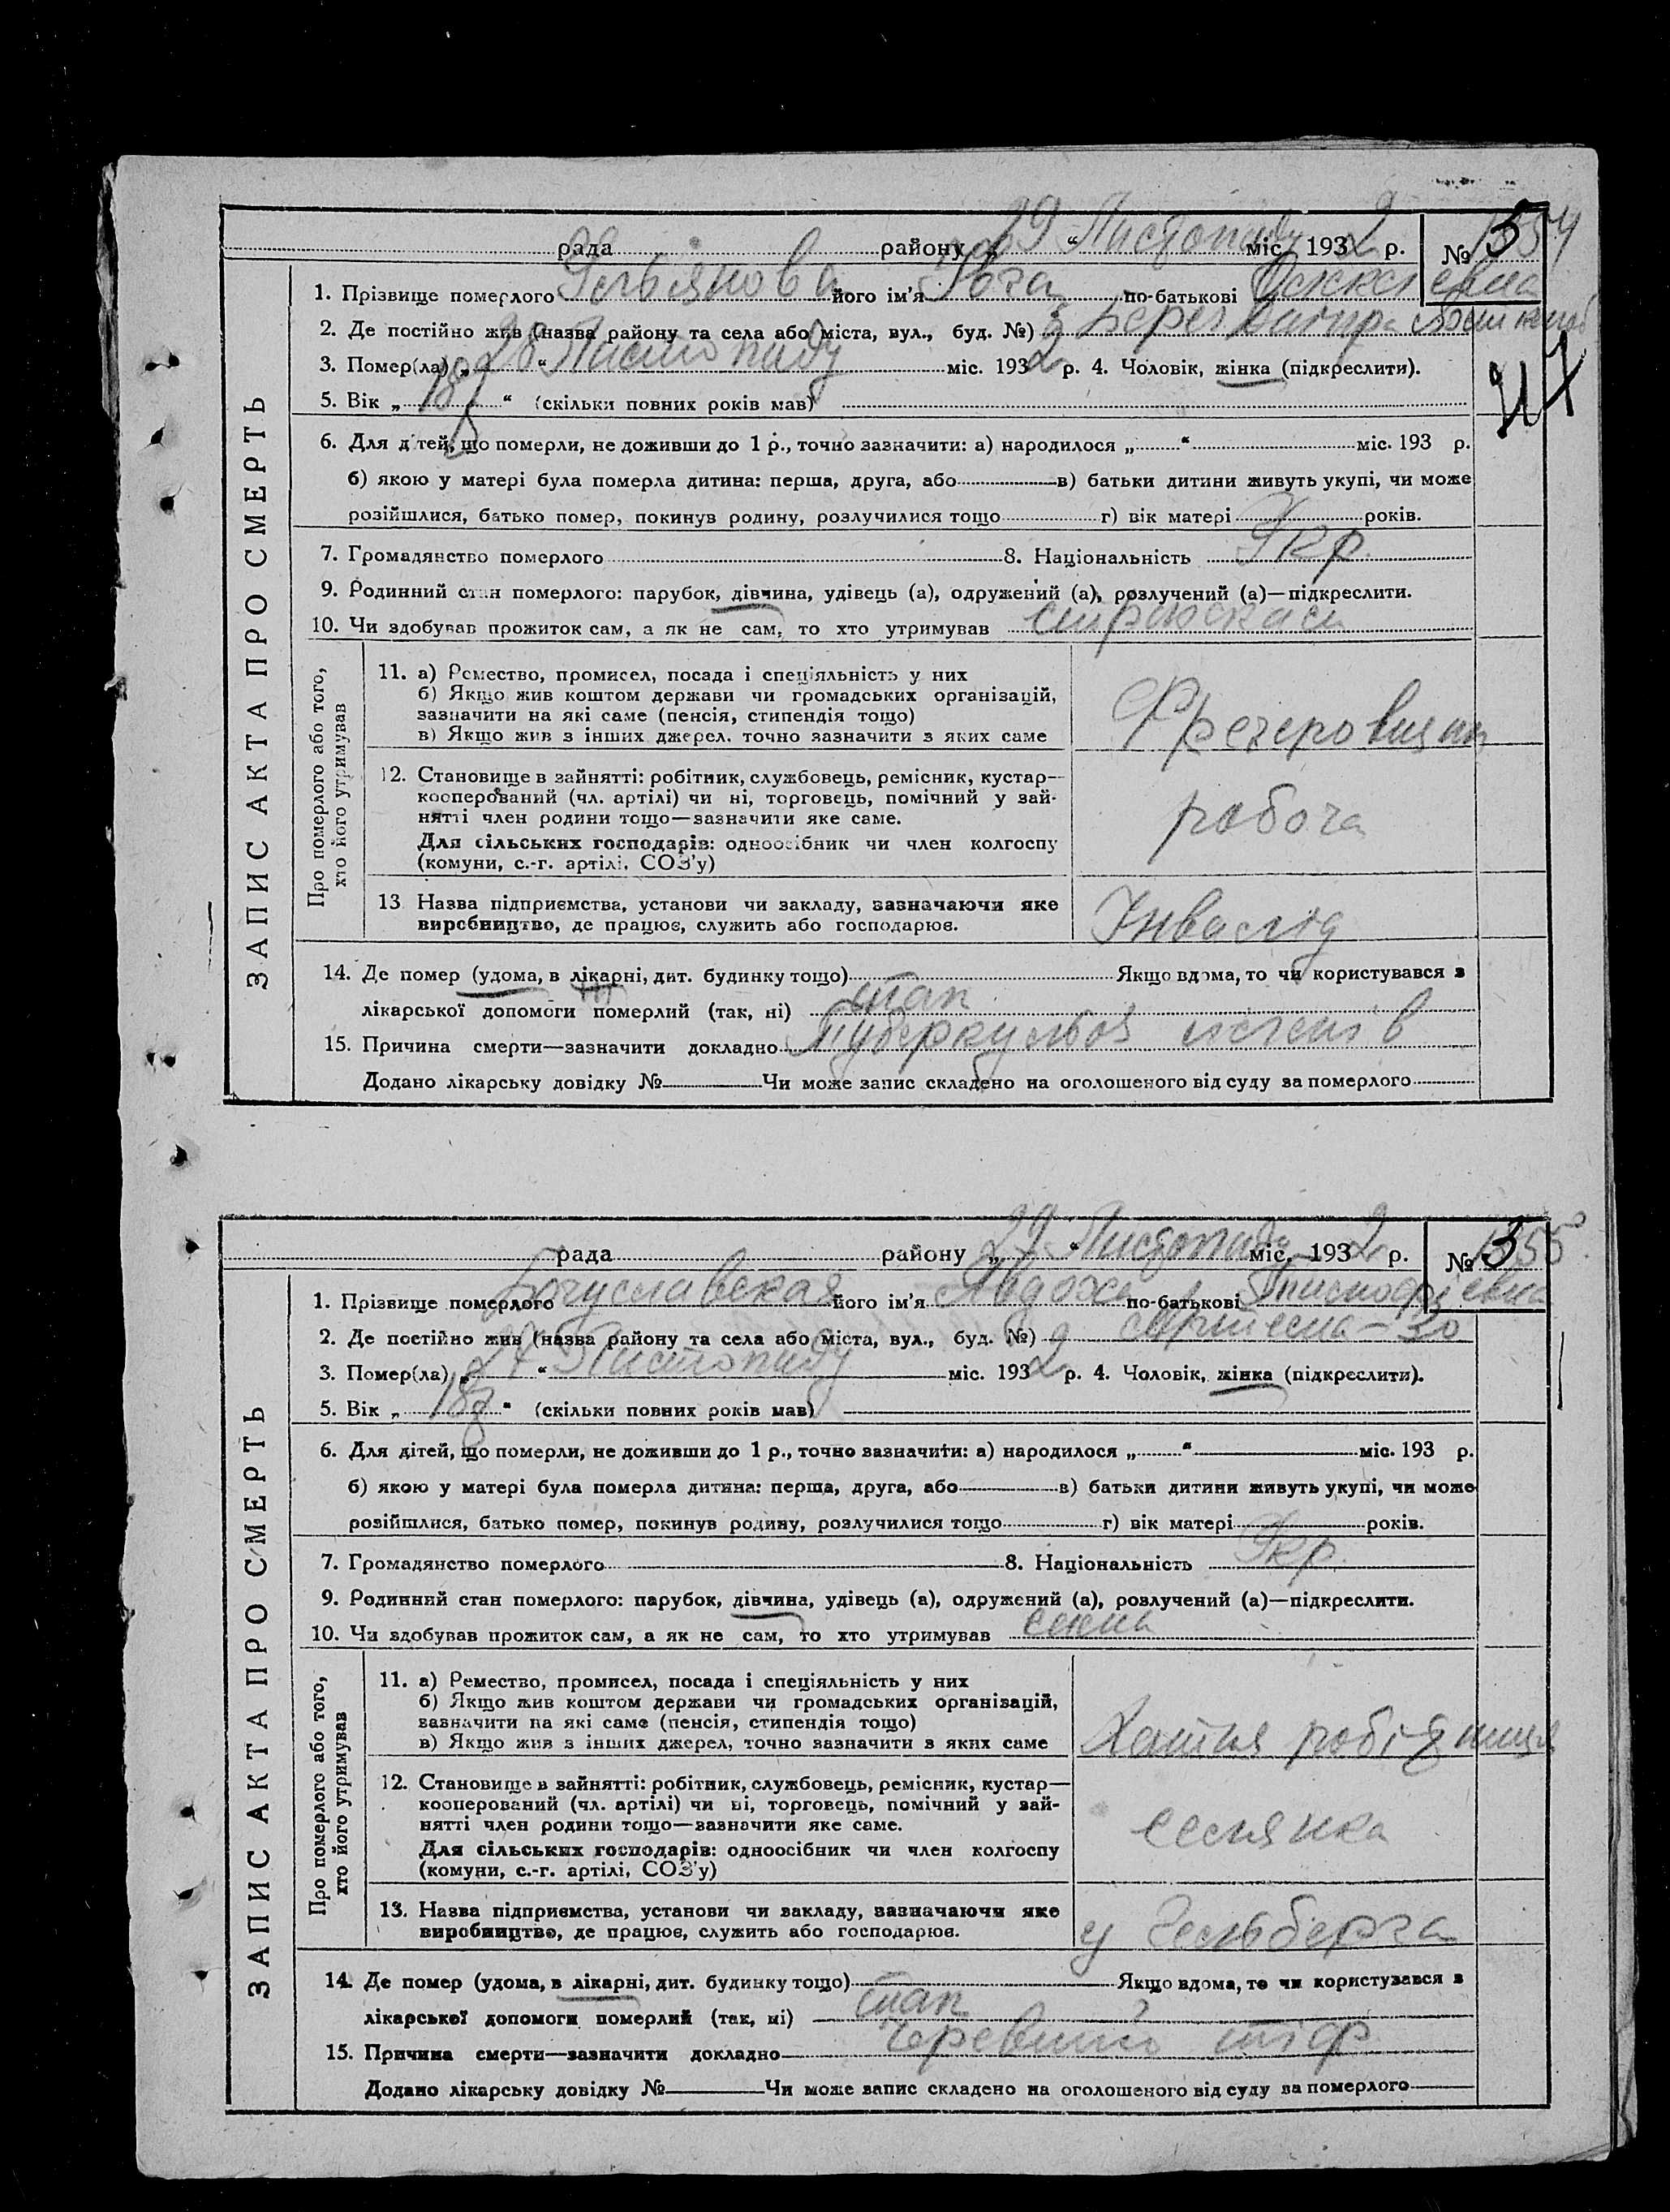 рада району „29“ Листопаду міс. 1932 р. № 1354
1. Прізвище померлого Ульянова його ім'я по-батькові Олексієвна
2. Де постійно жив (назва району та села або міста, вул., буд. №)
3. Помер(ла) „28“ Листопаду міс. 1932 р. 4. Чоловік, жінка (підкреслити).
5. Вік „18“ (скільки повних років мав)
6. Для дітей, що померли, не доживши до 1 р., точно зазначити: а) народилося „ “ міс. 193 р.
б) якою у матері була померла дитина: перша, друга, або в) батьки дитини живуть укупі, чи може
розійшлися, батько помер, покинув родину, розлучилися тощо г) вік матері років.
7. Громадянство померлого 8. Національність Укр
9. Родинний стан померлого: парубок, дівчина, удівець (а), одружений (а), розлучений (а)—підкреслити.
10. Чи здобував прожиток сам, а як не сам, то хто утримував страхкаса
ЗАПИС АКТА ПРО СМЕРТЬ
Про померлого або того,
хто його утримував
11. а) Ремество, промисел, посада і спеціяльність у них
б) Якщо жив коштом держави чи громадських організацій,
зазначити на які саме (пенсія, стипендія тощо)
в) Якщо жив з інших джерел, точно зазначити з яких саме
Фрезеровщиця
12. Становище в зайнятті: робітник, службовець, ремісник, кустар—
кооперований (чл. артілі) чи ні, торговець, помічний у зай-
нятті член родини тощо—зазначити яке саме.
Для сільських господарів: одноосібник чи член колгоспу
(комуни, с.-г. артілі, СОЗ'у)
робоча
13 Назва підприємства, установи чи закладу, зазначаючи яке
виробництво, де працює, служить або господарює.
Інвалід
14. Де помер (удома, в лікарні, дит. будинку тощо) Якщо вдома, то чи користувався з
лікарської допомоги померлий (так, ні) так
15. Причина смерти—зазначити докладно Туберкульоз легенів
Додано лікарську довідку № Чи може запис складено на оголошеного від суду за померлого
рада району „27“ Листопаду міс. 1932 р. № 1355
1. Прізвище померлого Богуславская його ім'я Явдоха по-батькові
2. Де постійно жив (назва району та села або міста, вул., буд. №)
3. Помер(ла) „27“ Листопаду міс. 1932 р. 4. Чоловік, жінка (підкреслити).
5. Вік „18“ (скільки повних років мав)
6. Для дітей, що померли, не доживши до 1 р., точно зазначити: а) народилося „ “ міс. 193 р.
б) якою у матері була померла дитина: перша, друга, або в) батьки дитини живуть укупі, чи може
розійшлися, батько помер, покинув родину, розлучилися тощо г) вік матері років.
7. Громадянство померлого 8. Національність Укр
9. Родинний стан померлого: парубок, дівчина, удівець (а), одружений (а), розлучений (а)—підкреслити.
10. Чи здобував прожиток сам, а як не сам, то хто утримував сама
ЗАПИС АКТА ПРО СМЕРТЬ
Про померлого або того,
хто його утримував
11. а) Ремество, промисел, посада і спеціяльність у них
б) Якщо жив коштом держави чи громадських організацій,
зазначити на які саме (пенсія, стипендія тощо)
в) Якщо жив з інших джерел, точно зазначити з яких саме
Хатня робітниця
12. Становище в зайнятті: робітник, службовець, ремісник, кустар—
кооперований (чл. артілі) чи ні, торговець, помічний у зай-
нятті член родини тощо—зазначити яке саме.
Для сільських господарів: одноосібник чи член колгоспу
(комуни, с.-г. артілі, СОЗ'у)
селянка
13. Назва підприємства, установи чи закладу, зазначаючи яке
виробництво, де працює, служить або господарює.
у Гельберга
14. Де помер (удома, в лікарні, дит. будинку тощо) Якщо вдома, то чи користувався з
лікарської допомоги померлий (так, ні) так
15. Причина смерти—зазначити докладно Черевний тіф
Додано лікарську довідку № Чи може запис складено на оголошеного від суду за померлого